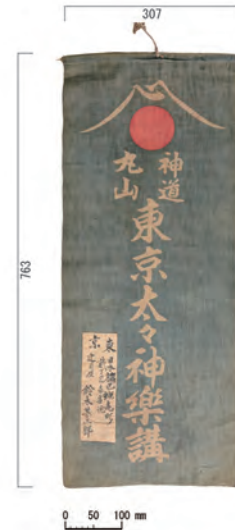 307
763
神道
丸山
東京太々神樂講
東京
日本橋
鈴木
0 50 100 mm